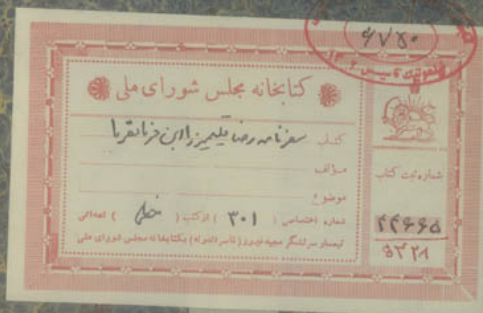 ۶۷۵۰
کتابخانه مجلس شورای ملی
کتاب سفرنامه رضا قلیمیرزا ابن فرمانفرما
مؤلف
موضوع
شماره اختصاصی ( ۳۰۱ ) از کتب ( خطی ) اهدائی
تیمسار سرلشگر مجید فیروز (ناصرالدوله) بکتابخانه مجلس شورای ملی
شماره ثبت کتاب
۴۴۶۶۵
۵۳۲۸